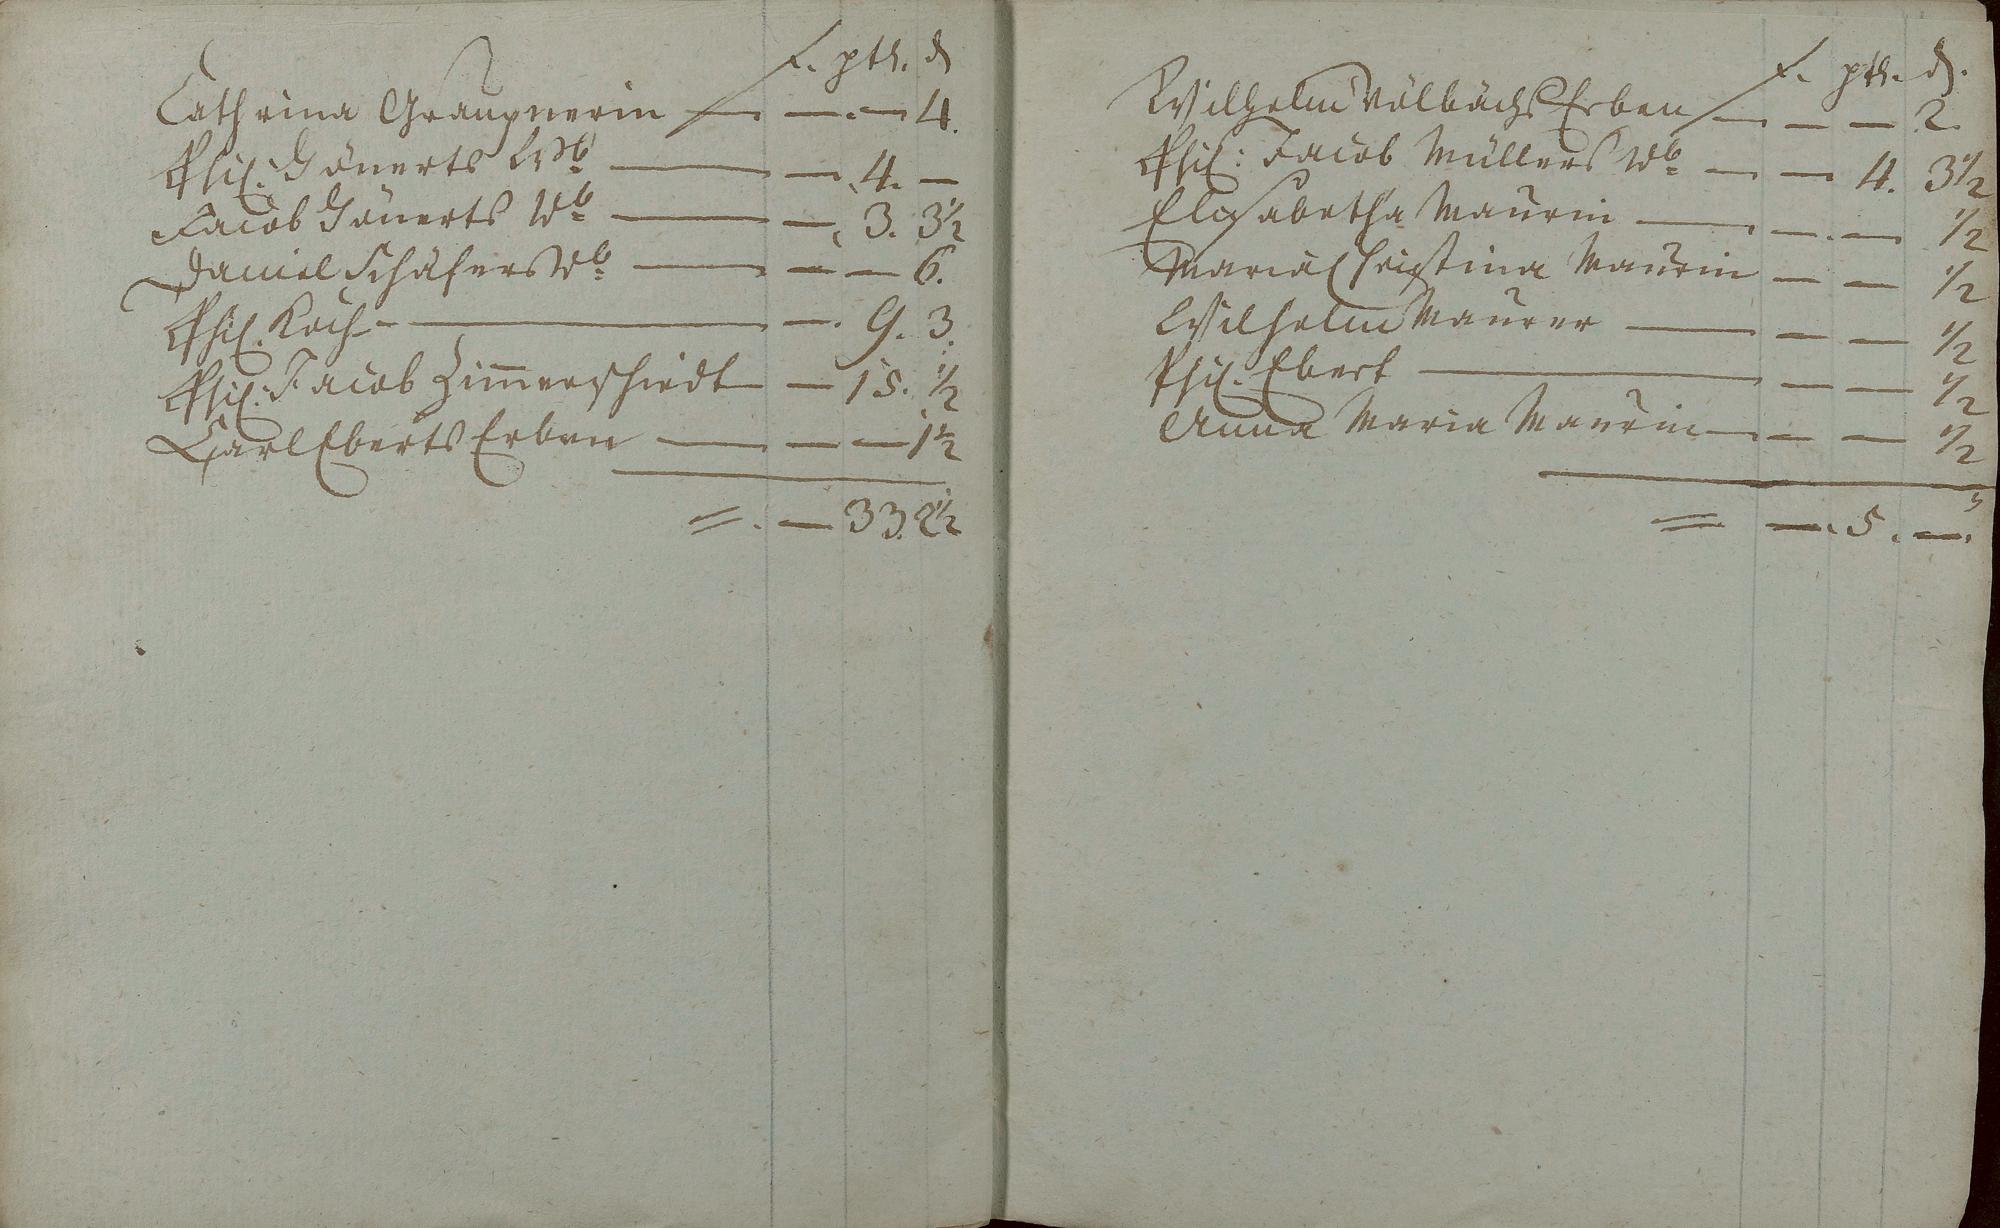 f. ptr. d
Cathrina Graupnerin — — — 4.
Phil. Gönerts Wb — — 4. —
Jacob Gönerts Wb — — 3. 3½
Daniel Schäfers Wb — — — 6.
Phil. Koch — — 9. 3.
Phil: Jacob Zimmerschiedt — 15. ½
Carl Eberts Erben — — — 1½
= . — 33. 2½
f. ptr. d.
Wilhelm Völbachs Erben — — — 2.
Phil: Jacob Müllers Wb — — 4. 3½
Elisabetha Maurin — — — ½
Maria Christina Maurin — — ½
Wilhelm Maurer — — — ½
Phil. Ebert — — — ½
Anna Maria Maurin — — — ½
= — . 5 . — .